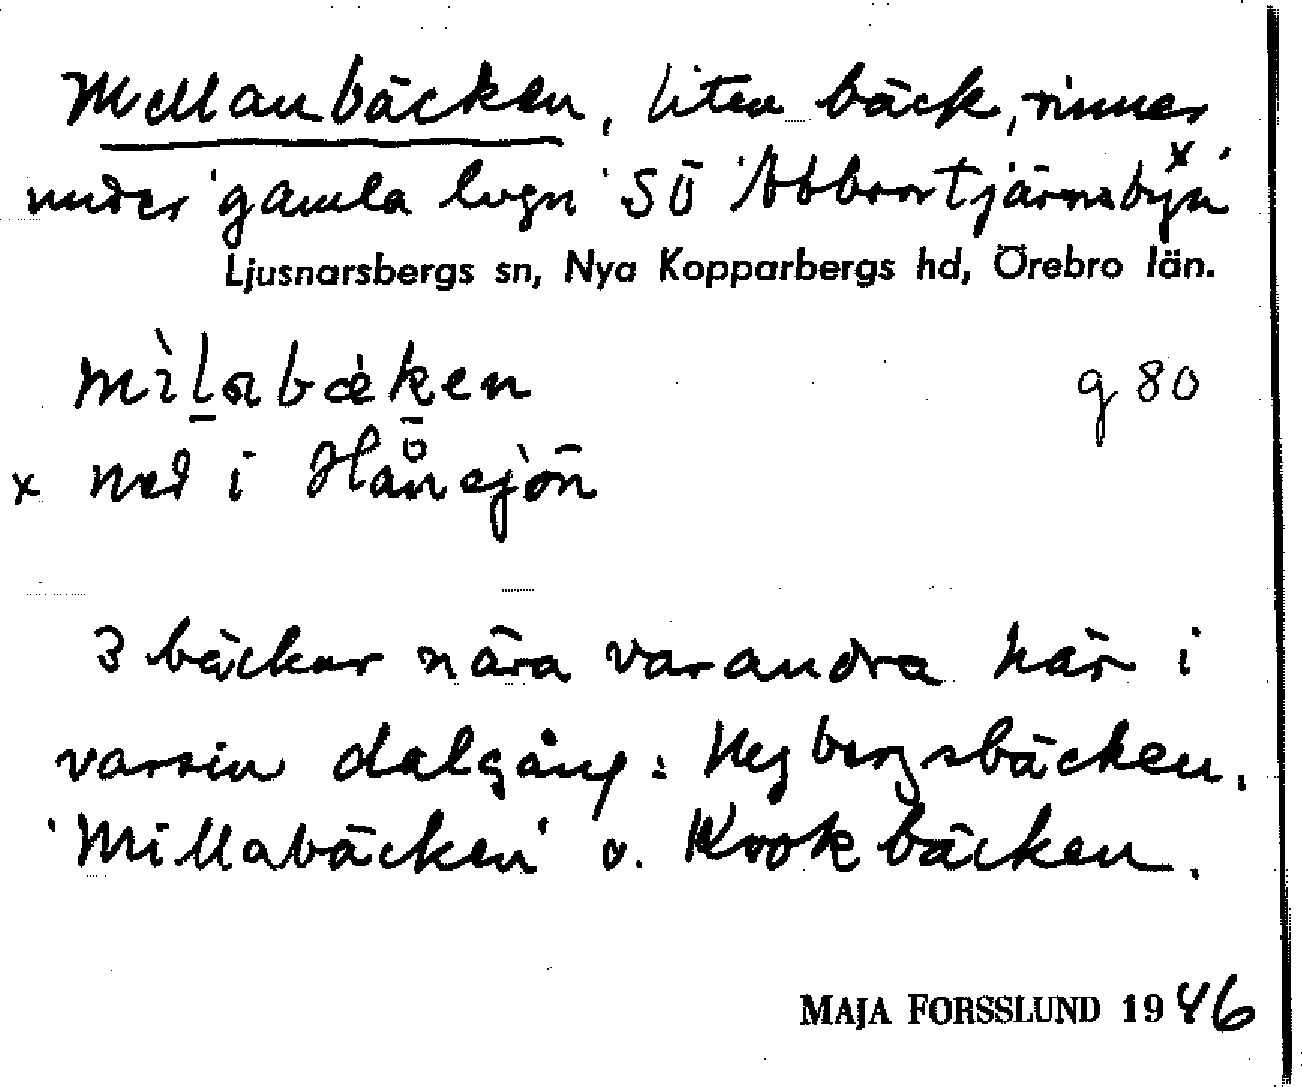 Mellanbäcken, liten bäck, rinner
under 'gamla lvgn' SÖ 'Abborrtjärnsbyn' x
Ljusnarsbergs sn, Nya Kopparbergs hd, Örebro län.
mìlabæken g 80
x ned i Hånsjön
3 bäckar nära varandra här i
varsin dalgång: Nybergsbäcken,
'Millabäcken' o. Krokbäcken.
MAJA FORSSLUND 1946